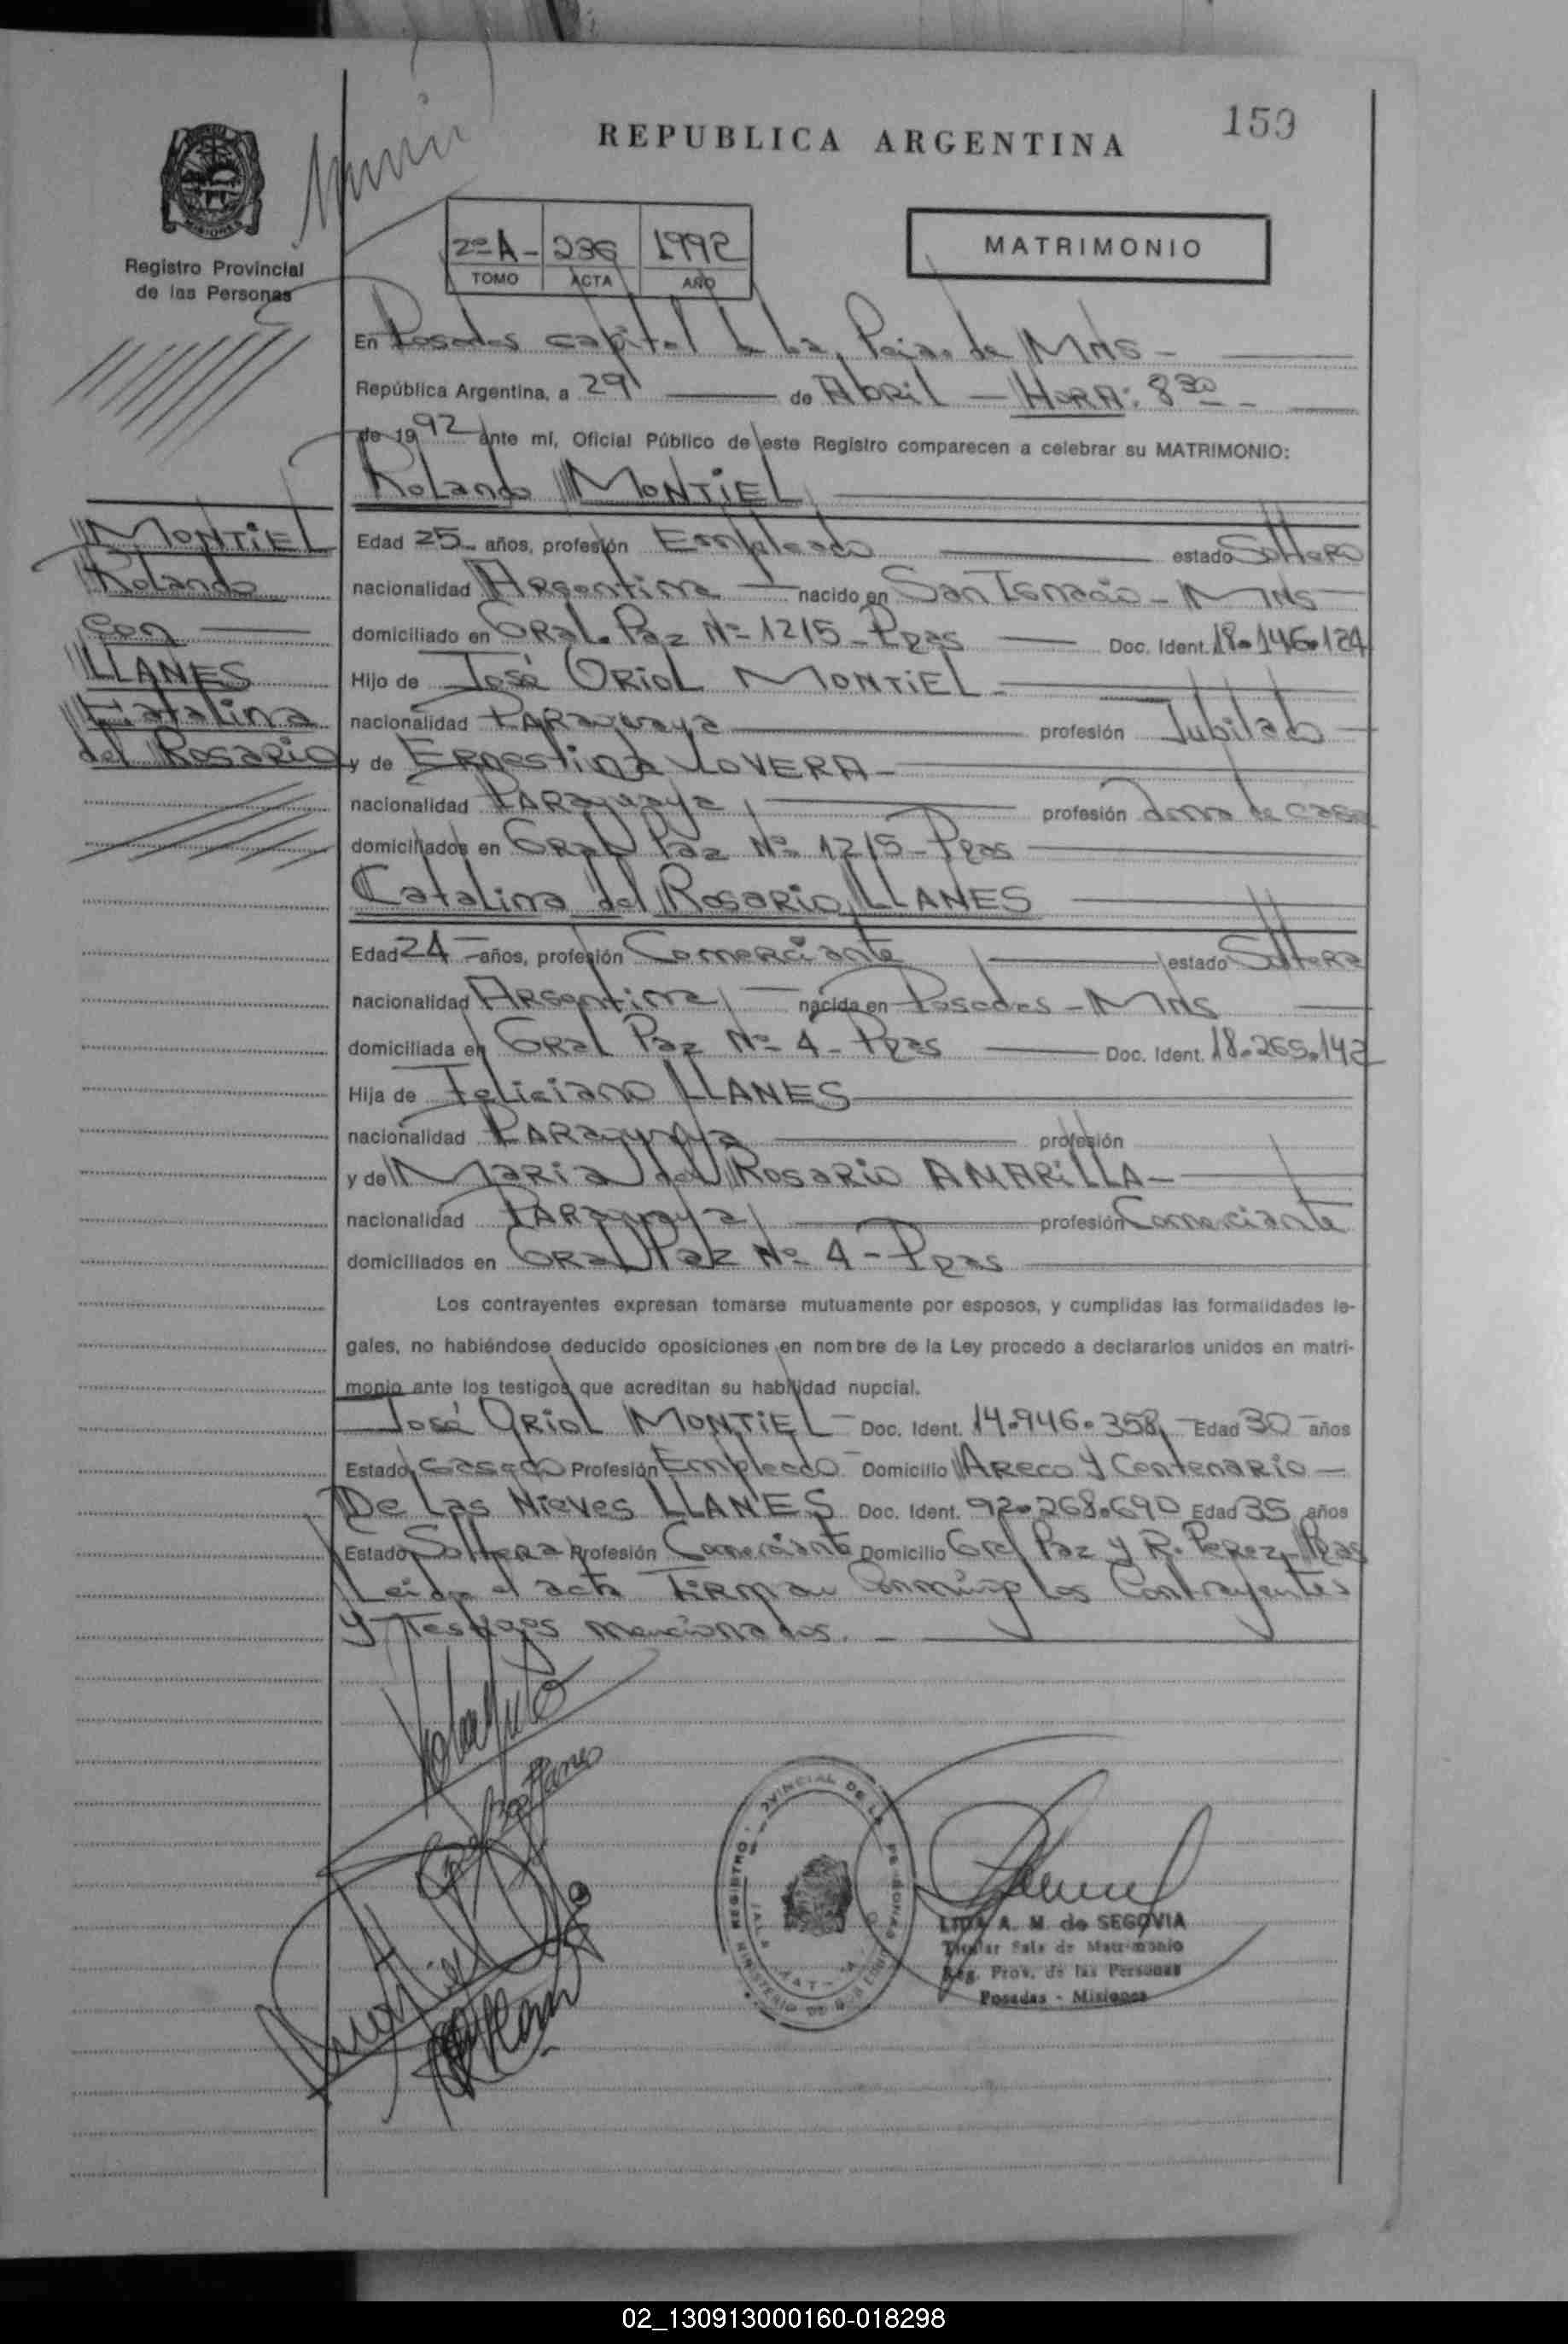 159
REPUBLICA ARGENTINA
Registro Provincial
de las Personas
2º A - 236 1992
TOMO ACTA AÑO
MATRIMONIO
En Posadas capital de la Pcia. de Mnes -
República Argentina, a 29 de Abril - HORA: 8 30 -
de 1992 ante mí, Oficial Público de este Registro comparecen a celebrar su MATRIMONIO:
Rolando MONTIEL
MONTIEL
Rolando
con
LLANES
Catalina
del Rosario
Edad 25 años, profesión Empleado estado Soltero
nacionalidad Argentina nacido en San Ignacio - Mnes
domiciliado en Gral. Paz Nº 1215 - Pdas Doc. Ident. 18.146.124
Hijo de José Oriol MONTIEL -
nacionalidad Paraguaya profesión Jubilado
y de Ernestina LOVERA -
nacionalidad Paraguaya profesión ama de casa
domiciliados en Gral Paz Nº 1215 - Pdas
Catalina del Rosario LLANES
Edad 24 años, profesión Comerciante estado Soltera
nacionalidad Argentina nacida en Posadas - Mnes
domiciliada en Gral Paz Nº 4 - Pdas Doc. Ident. 18.265.142
Hija de Feliciano LLANES
nacionalidad Paraguaya profesión
y de Maria del Rosario AMARILLA -
nacionalidad Paraguaya profesión Comerciante
domiciliados en Gral Paz Nº 4 - Pdas
Los contrayentes expresan tomarse mutuamente por esposos, y cumplidas las formalidades le-
gales, no habiéndose deducido oposiciones en nombre de la Ley procedo a declararlos unidos en matri-
monio ante los testigos que acreditan su habilidad nupcial.
José Oriol MONTIEL - Doc. Ident. 14.946.358 - Edad 30 años
Estado Casado Profesión Empleado Domicilio Areco y Centenario -
De Las Nieves LLANES Doc. Ident. 92.268.690 Edad 35 años
Estado Soltera Profesión Comerciante Domicilio Gral Paz y R. Perez Pdas
Leída el acta Firman Conmigo los Contrayentes
y Testigos mencionados. -
LIDA A. M. de SEGOVIA
Titular Sala de Matrimonio
Reg. Prov. de las Personas
Posadas - Misiones
02_130913000160-018298